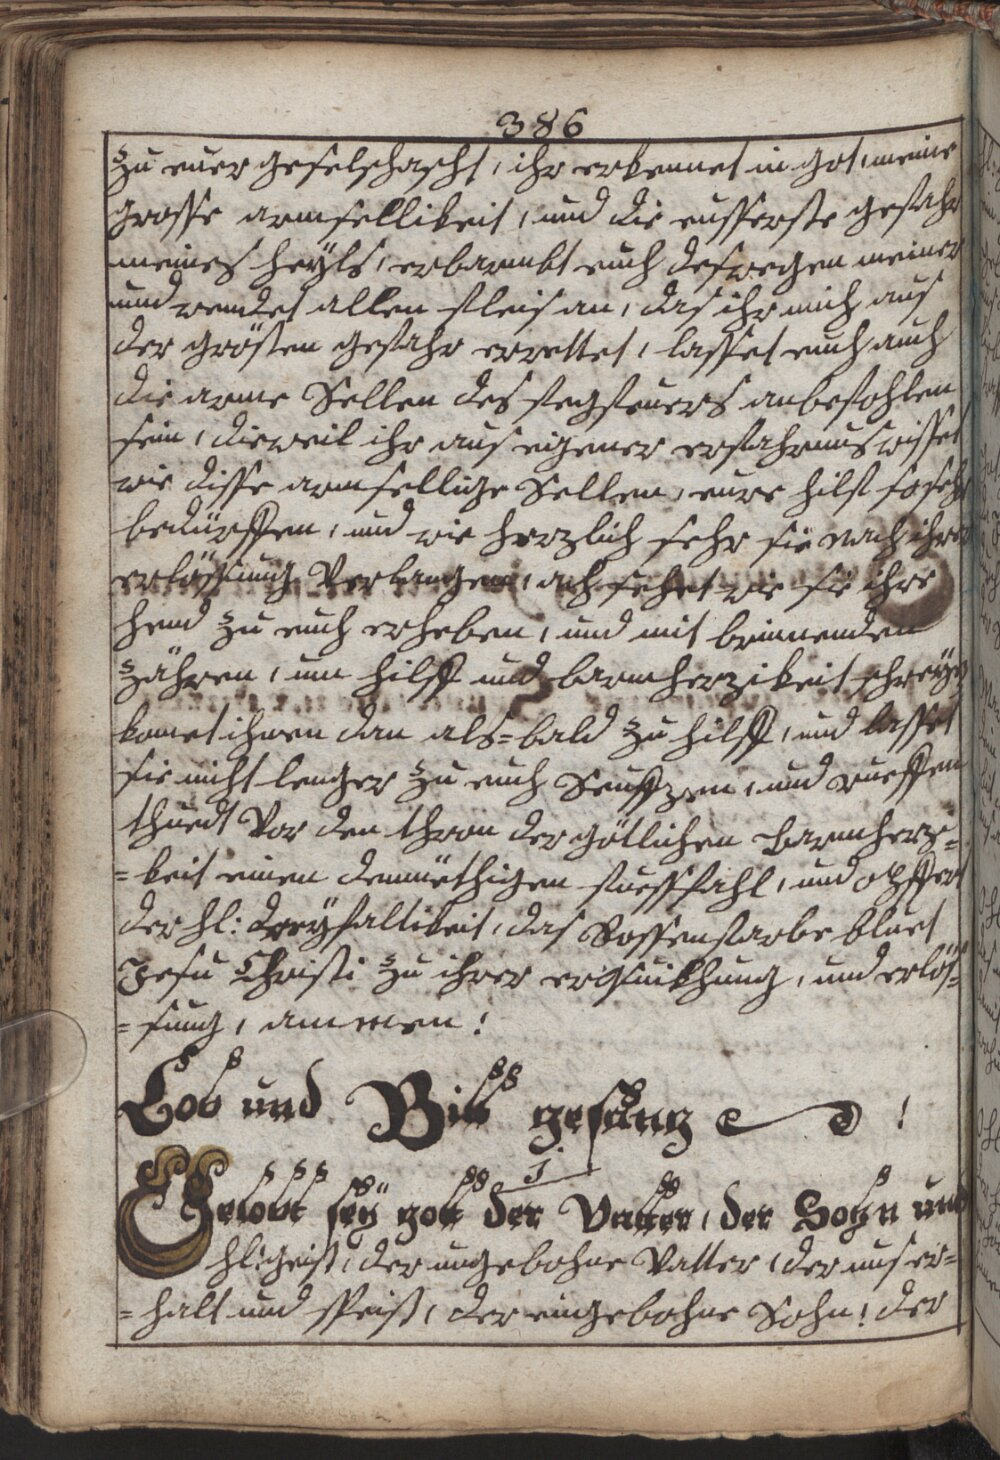 386
zu euer geselschafft, ihr erkennet in got, meine
grosse armsellikeit, und die eusserste gefahr
meines heÿls, erbarmbt euch deswegen meiner
und wendet allen fleis an, das ihr mich aus
der grösten gefahr errettet, lasset euch auch
die arme Sellen des fegfeuers anbefohlen
sein, dieweil ihr aus eigener erfahrnus wisset
wie disse armsellige Sellen, eure hilf so sehr
bedürffen, und wie herzlich sehr sie nach ihrer
erlössung verlangen, ach sehet wie sie ihre
hend zu euch erheben, und mit brinnenden
zähren, um hilff und barmherzikeit schreÿen
komet ihnen dan als=bald zu hilff, und lasset
sie nicht lenger zu euch Seuffzen, und rueffen
thuedt vor den thron der götlichen barmherzi=
=keit einen demüethigen fuessfahl, und opffert
der hl: dreÿfaltikeit, das Rossenfarbe bluet
Jesu Christi zu ihrer erquickhung, und erlös=
=sung, ammen!
Lob und Bitt gesang !
1
Gelobt seÿ gott der Vatter, der Sohn und
hl: geist, der ungebohrne Vatter, der uns er=
=halt und speist, der eingebohrne Sohn! der